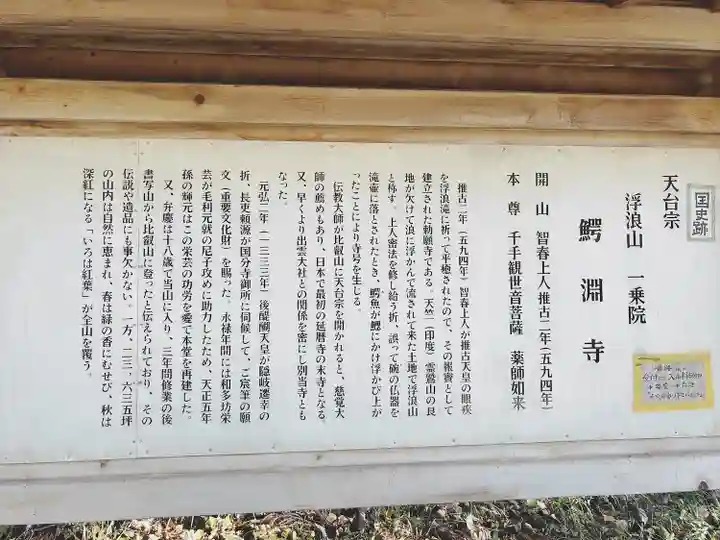 国史跡
天台宗
浮浪山 一乗院
鰐淵寺
開山 智春上人推古二年(五九四年)
本尊 千手観世音菩薩 薬師如来
推古二年(五九四年)智春上人が推古天皇の眼疾
を浮浪滝に祈って平癒されたので、その報賽として
建立された勅願寺である。天竺(印度)霊鷲山の艮
地が欠けて浪に浮かんで流されて来た土地で浮浪山
と称す。上人密法を修し給う折、誤って碗の仏器を
滝壷に落とされたとき、鰐魚が鰓にかけ浮かび上が
ったことにより寺号を生じる。
伝教大師が比叡山に天台宗を開かれると、慈覚大
師の薦めもあり、日本で最初の延暦寺の末寺となる。
又、早くより出雲大社との関係を密にし別当寺とも
なった。
元弘二年(一三三三年)後醍醐天皇が隠岐遷幸の
折、長吏頼源が国分寺御所に伺候して、ご宸筆の願
文(重要文化財)を賜った。永禄年間には和多坊栄
芸が毛利元就の尼子攻めに助力したため、天正五年
孫の輝元はこの栄芸の功労を愛で本堂を再建した。
又、弁慶は十八歳で当山に入り、三年間修業の後
書写山から比叡山に登ったと伝えられており、その
伝説や遺品にも事欠かない。一方、二三、六三五坪
の山内は自然に恵まれ、春は緑の香にむせび、秋は
深紅になる「いろは紅葉」が全山を覆う。